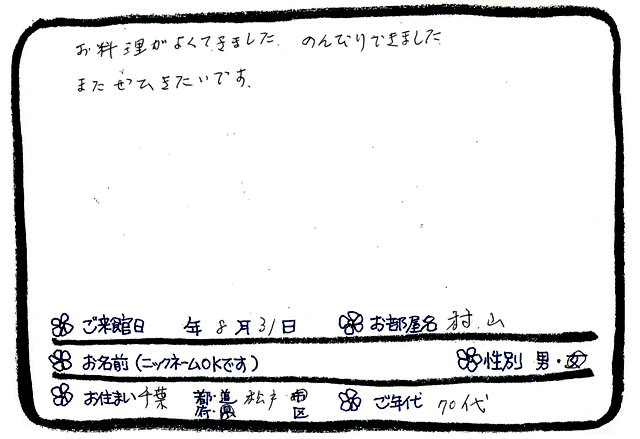 お料理がよくできました. のんびりできました
また ぜひ きたいです.
ご来館日 年 8月31日 お部屋名 村.山
お名前(ニックネームOKです) 性別 男・女
お住まい 千葉 都・道 府・県 松戸 市 区 ご年代 70代